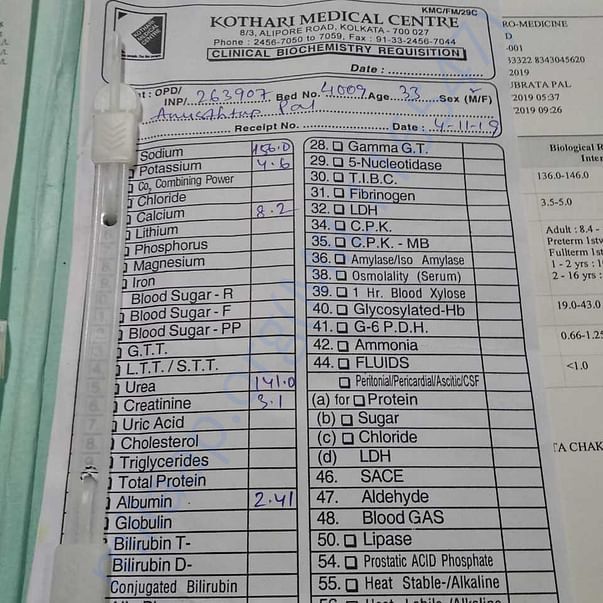 KMC/FM/29C
KOTHARI MEDICAL CENTRE
8/3, ALIPORE ROAD, KOLKATA - 700 027
Phone : 2456-7050 to 7059, Fax : 91-33-2456-7044
CLINICAL BIOCHEMISTRY REQUISITION
Date : ..................
: OPD/
INP/. 263907 Bed No. 4009 Age. 33 Sex (M/F)
Pal
Receipt No. Date : 4-11-19
Sodium 156.0
Potassium 4.6
Co₂ Combining Power
Chloride
Calcium 8.2
Lithium
Phosphorus
Magnesium
Iron
Blood Sugar - R
Blood Sugar - F
Blood Sugar - PP
G.T.T.
L.T.T. / S.T.T.
Urea 141.0
Creatinine 3.1
Uric Acid
Cholesterol
Triglycerides
Total Protein
Albumin 2.41
Globulin
Bilirubin T-
Bilirubin D-
Conjugated Bilirubin
28. Gamma G.T.
29. 5-Nucleotidase
30. T.I.B.C.
31. Fibrinogen
32. LDH
34. C.P.K.
35. C.P.K. - MB
36. Amylase/Iso Amylase
38. Osmolality (Serum)
39. 1 Hr. Blood Xylose
40. Glycosylated-Hb
41. G-6 P.D.H.
42. Ammonia
44. FLUIDS
Peritonial/Pericardial/Ascitic/CSF
(a) for Protein
(b) Sugar
(c) Chloride
(d) LDH
46. SACE
47. Aldehyde
48. Blood GAS
50. Lipase
54. Prostatic ACID Phosphate
55. Heat Stable-/Alkaline
56. Heat Labile-/Alkaline
RO-MEDICINE
D
-001
33322 8343045620
2019
UBRATA PAL
2019 05:37
2019 09:26
Biological R
Inter
136.0-146.0
3.5-5.0
Adult : 8.4 -
Preterm 1stw
Fullterm 1st
1 - 2 yrs : 1
2 - 16 yrs :
19.0-43.0
0.66-1.25
<1.0
TA CHAK